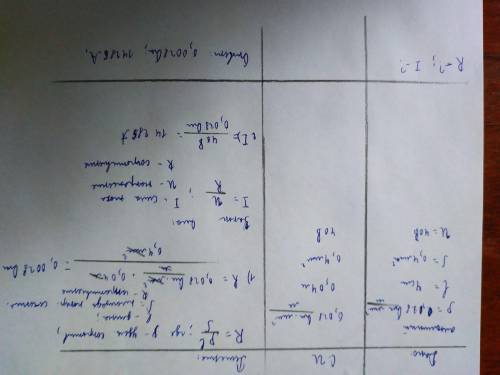 Дано:
алюминий
ρ = 0,028 Ом·мм²/м
l = 4см
S = 0,4мм²
U = 40В
R-?; I-?
СИ
0,028 Ом·мм²/м
0,04м
0,4мм²
40В
Решение:
R = ρl/S; где ρ - удел. сопротивл,
l - длина,
S - площадь попер. сечения.
R - сопротивление
1) R = 0,028 Ом·мм²/м · 0,04м / 0,4мм² = 0,0028 Ом
Закон Ома:
I = U/R; I - сила тока
U - напряжение
R - сопротивление
I = 40В/0,028Ом = 14285А
Ответ: 0,0028Ом, 14285А,